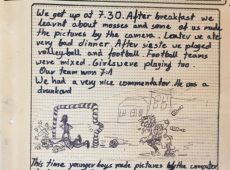 We get up at 7.30. After breakfast we
learnt about mosses and some of us made
the pictures by the camera. Leater we ate
very bad dinner. After sieste we played
volleyball and football. Football teams
were mixed. Girls were playing too.
Our team won 7:1
We had a very nice commentator. He was a
drunkard
This time younger boys made pictures by the computer